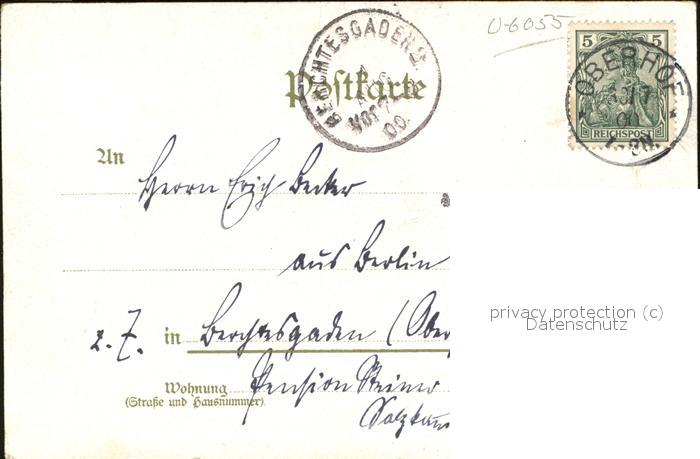 U-6055
5 5
REICHSPOST
OBERHOF
BERCHTESGADEN 2.
00.
Postkarte
An
Herrn Erich Becker
aus Berlin
z. Z. in Berchtesgaden (Ober
Wohnung Pension
(Straße und Hausnummer)
privacy protection (c)
Datenschutz